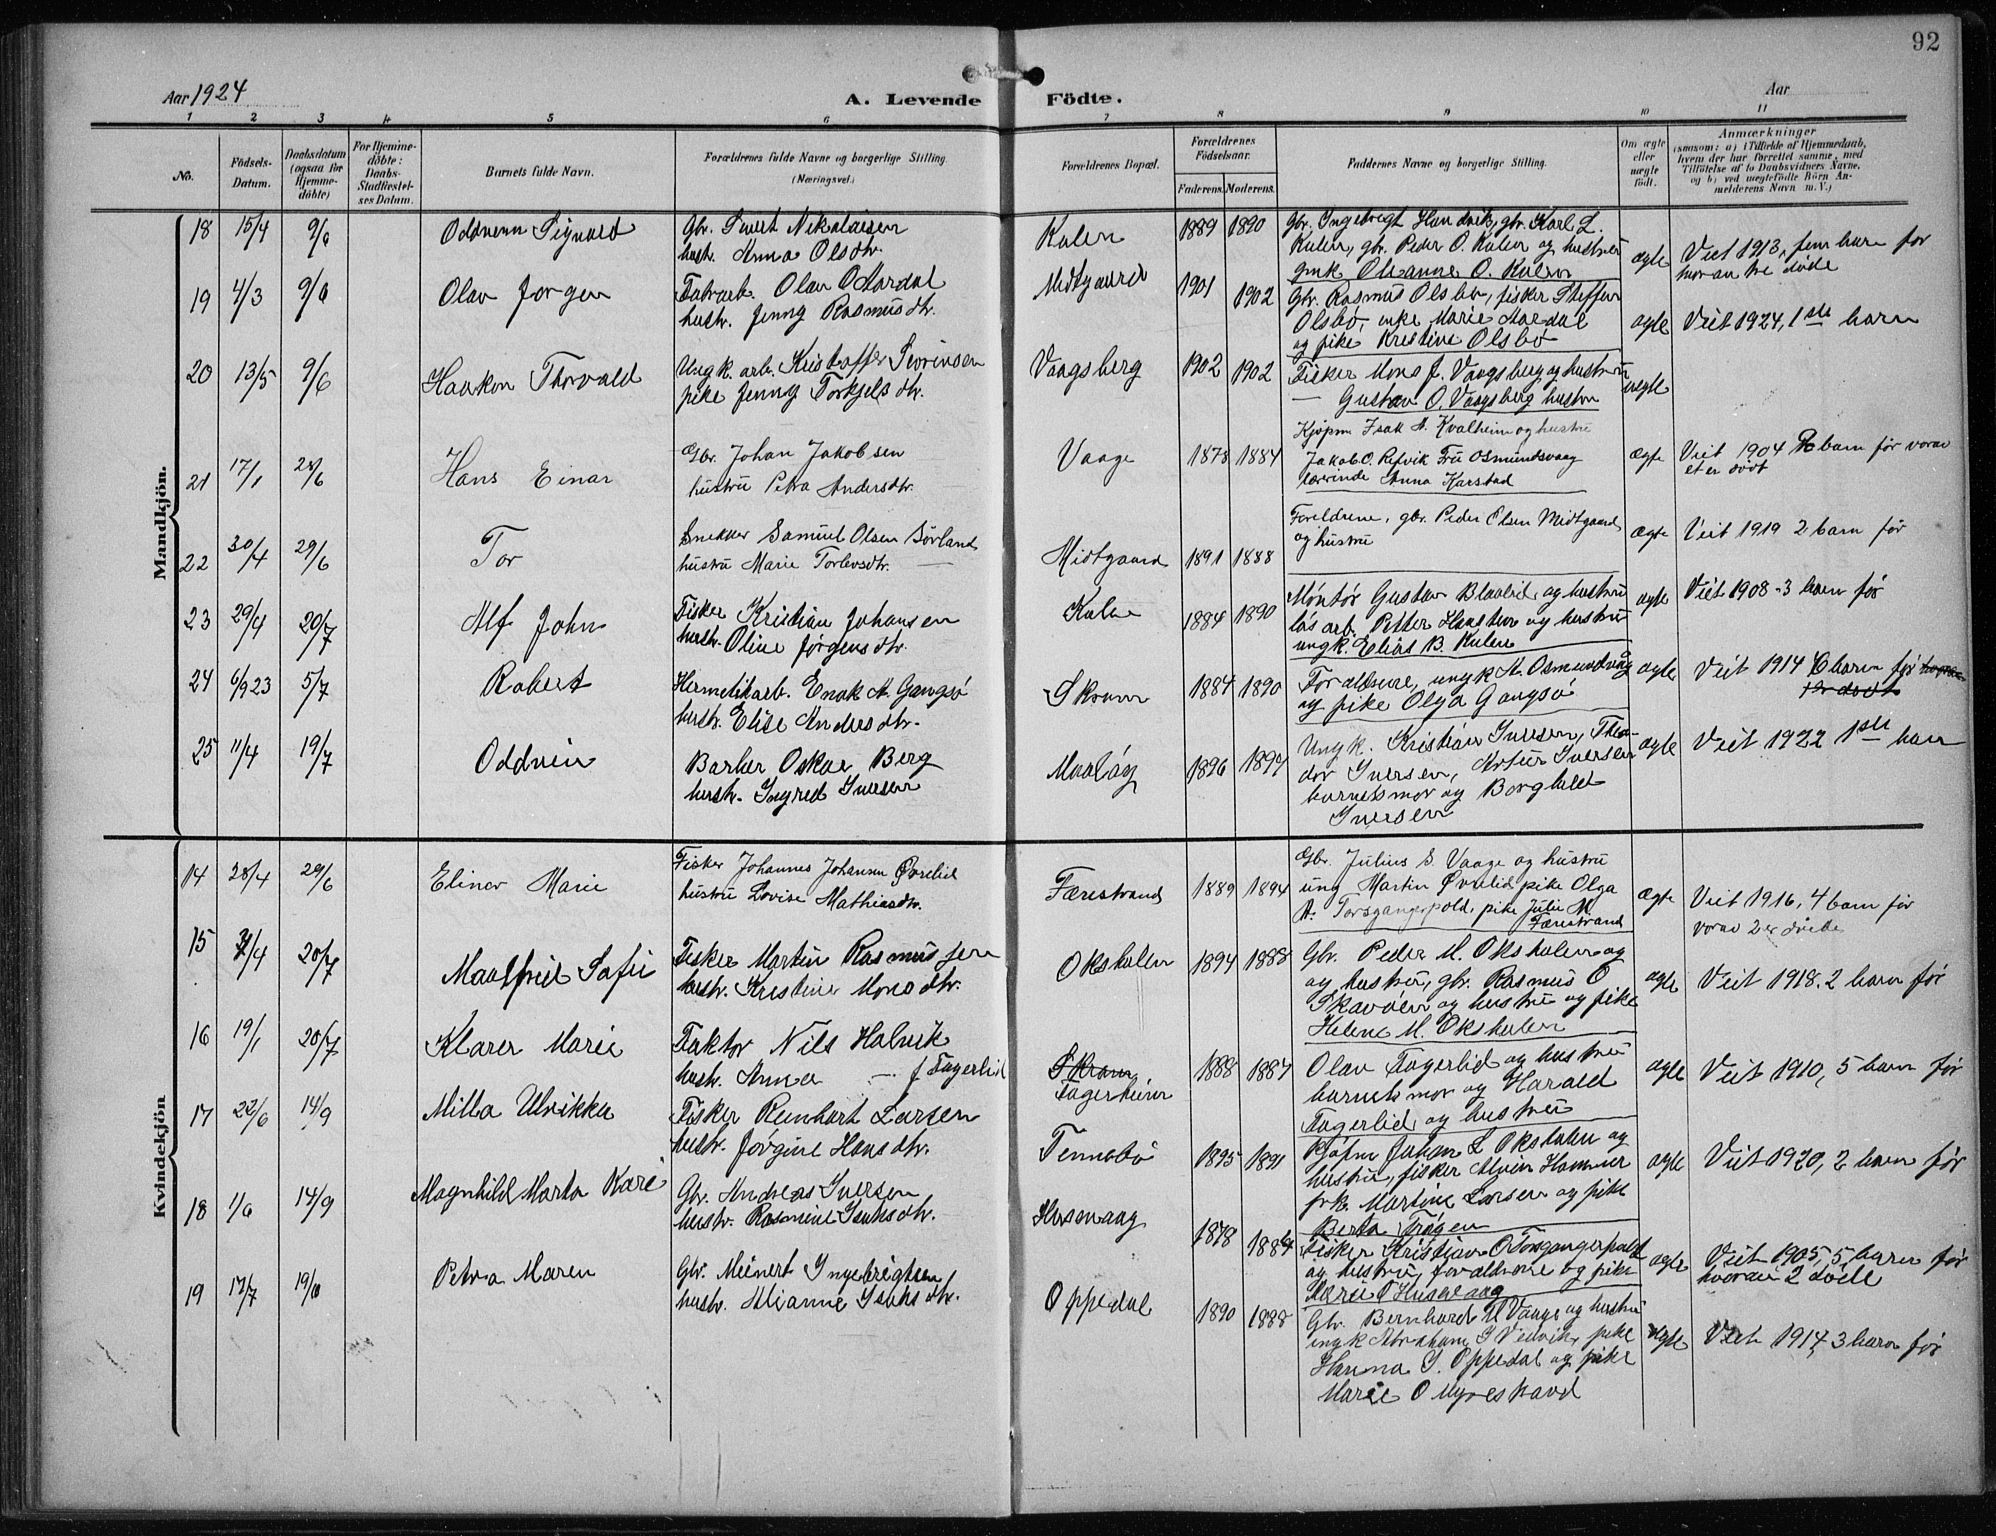 92
Aar 1924
A. Levende Födte.
Aar
1 2 3 4 5 6 7 8 9 10 11
No.
Födsels-
Datum.
Daabsdatum
(ogsaa for
Hjemme-
döbte)
For Hjemme-
döbte:
Daabs-
Stadfæstel-
ses Datum.
Barnets fulde Navn.
Forældrenes fulde Navne og borgerlige Stilling.
(Næringsvei.)
Forældrenes Bopæl.
Forældrenes
Födselsaar.
Faderens. Moderens.
Faddernes Navne og borgerlige Stilling.
Om ægte
eller
uægte
födt.
Anmærkninger
(saasom: a) i Tilfælde af Hjemmedaab,
hvem der har forrettet samme, med
Tilföielse af to Daabsvidners Navne,
og b) ved uægtefödte Börn An-
melderens Navn m. V.)
Mandkjön.
18 15/4 9/6 Oddvenn Sigvard
Gbr. Sivert Nikolaisen
hustr. Anna Olsdtr.
Kulen 1889 1890
Gbr. Ingebrigt Handvik, gbr. Karl L.
Kulen, gbr. Peder O. Kulen og hustru
gmk Olianne O. Kulen
ægte
Viet 1913, fem barn før
hvoran tre døde
19 4/3 9/6 Olav Jørgen
Fabrarb. Olav O Aardal
hustr. Jenny Rasmusdtr.
Midtgaard 1901 1902
Gbr. Rasmus Olsbø, fisker Steffen
Olsbø, enke Marie Aardal
og pike Kristine Olsbø
ægte Viet 1924, 1ste barn
20 13/5 9/6 Haakon Thorvald
Ungk. arb. Kristoffer Severinsen
pike Jenny Torkjelsdtr.
Vaagsberg 1902 1902
Fisker Mons J. Vaagsberg og hustru
— Gustav O. Vaagsberg hustru
uægte
21 17/1 28/6 Hans Einar
Gbr. Johan Jakobsen
hustru Petra Andersdtr.
Vaage 1878 1884
Kjøpm Isak A. Kvalheim og hustru
Jakob O. Refvik Fru Osmundsvaag
lærerinde Anna Karstad
ægte
Viet 1904 barn før vorav
et er dödt
22 30/4 29/6 Tor
Snekker Samuel Olsen Sörland
hustru Marie Torlevsdtr.
Midtgaard 1891 1888
Foreldrene, gbr. Peder Olsen Midtgaard
og hustru
ægte Viet 1919 2 barn før
23 29/4 20/7 Alf John
Fisker Kristian Johansen
hustr. Oline Jørgensdtr.
Kulen 1884 1890
Montør Gustav Blaalid og hustru
løs arb. Petter Hanstun og hustru
ungk. Elias B. Kulen
ægte Viet 1908-3 barn før
24 6/9 23 5/7 Robert
Hermetikarb. Enok A. Gangsø
hustr. Elise Andersdtr.
Skram 1884 1890
Forældrene, ungk A. Osmundvaag
og pike Olga Gangsø
ægte Viet 1914 6 barn før
25 11/4 19/7 Oddvin
Barber Oskar Berg
hustr. Ingrid Iversen
Maaløy 1896 1897
Ungk. Kristian Iversen, Theo-
dor Iversen, Artur Iversen
barnets mor og Borghild
Iversen
ægte Viet 1922 1ste barn
Kvindekjön
14 28/4 29/6 Elinor Marie
Fisker Johannes Johansen Øvrelid
hustru Lovise Mathiasdtr.
Færestrand 1889 1894
Gbr. Julius S. Vaage og hustru
ung Martin Øvrelid pike Olga
A. Torsgangerpold, pike Julie M.
Færestrand
ægte
Viet 1916, 4 barn før
vorav 2 er døde
15 /4 20/7 Maalfrid Sofie
Fisker Martin Rasmussen
hustr. Kristine Monsdtr.
Okshulen 1894 1888
Gbr. Peder M. Okshulen og
og hustru, gbr. Rasmus O
Skavøen og hustru og pike
Helene M. Okshulen
ægte Viet 1918. 2 barn før
16 19/1 20/7 Klara Marie
Faktor Nils Halvik
hustr. Anna — f Fagerlid
Skram
Fagerheim 1888 1887
Olav Fagerlid og hustru
barnets mor og Harald
Fagerlid og hustru
ægte Viet 1910, 5 barn før
17 22/6 14/9 Milla Ulrikke
Fisker Reinhart Larsen
hustr. Jørgine Hansdtr.
Tennebø 1895 1891
Kjøpm Johan L Okshulen og
hustru, fisker Alvin Hammer
frk. Martine Larsen og pike
Berta Trøgen
ægte Viet 1920, 2 barn før
18 1/6 14/9 Magnhild Marta Kari
Gbr. Andreas Iversen
hustr. Rasmine Isaksdtr.
Husevaag 1878 1884
Fisker Kristian O Torsgangerpold
og hustru, forældrene og pike
Marie O Husevaag
ægte
Viet 1905, 5 barn før
hvorav 2 døde
19 17/7 19/ Petra Maren
Gbr. Meinert Ingebrigtsen
hustr. Mianne Isaksdtr.
Oppedal 1890 1888
Gbr. Bernhard M Vaage og hustru
ungk Abraham I Vedvik, pike
Hanna I. Oppedal og pike
Marie O Myrestrand
ægte Viet 1914, 3 barn før